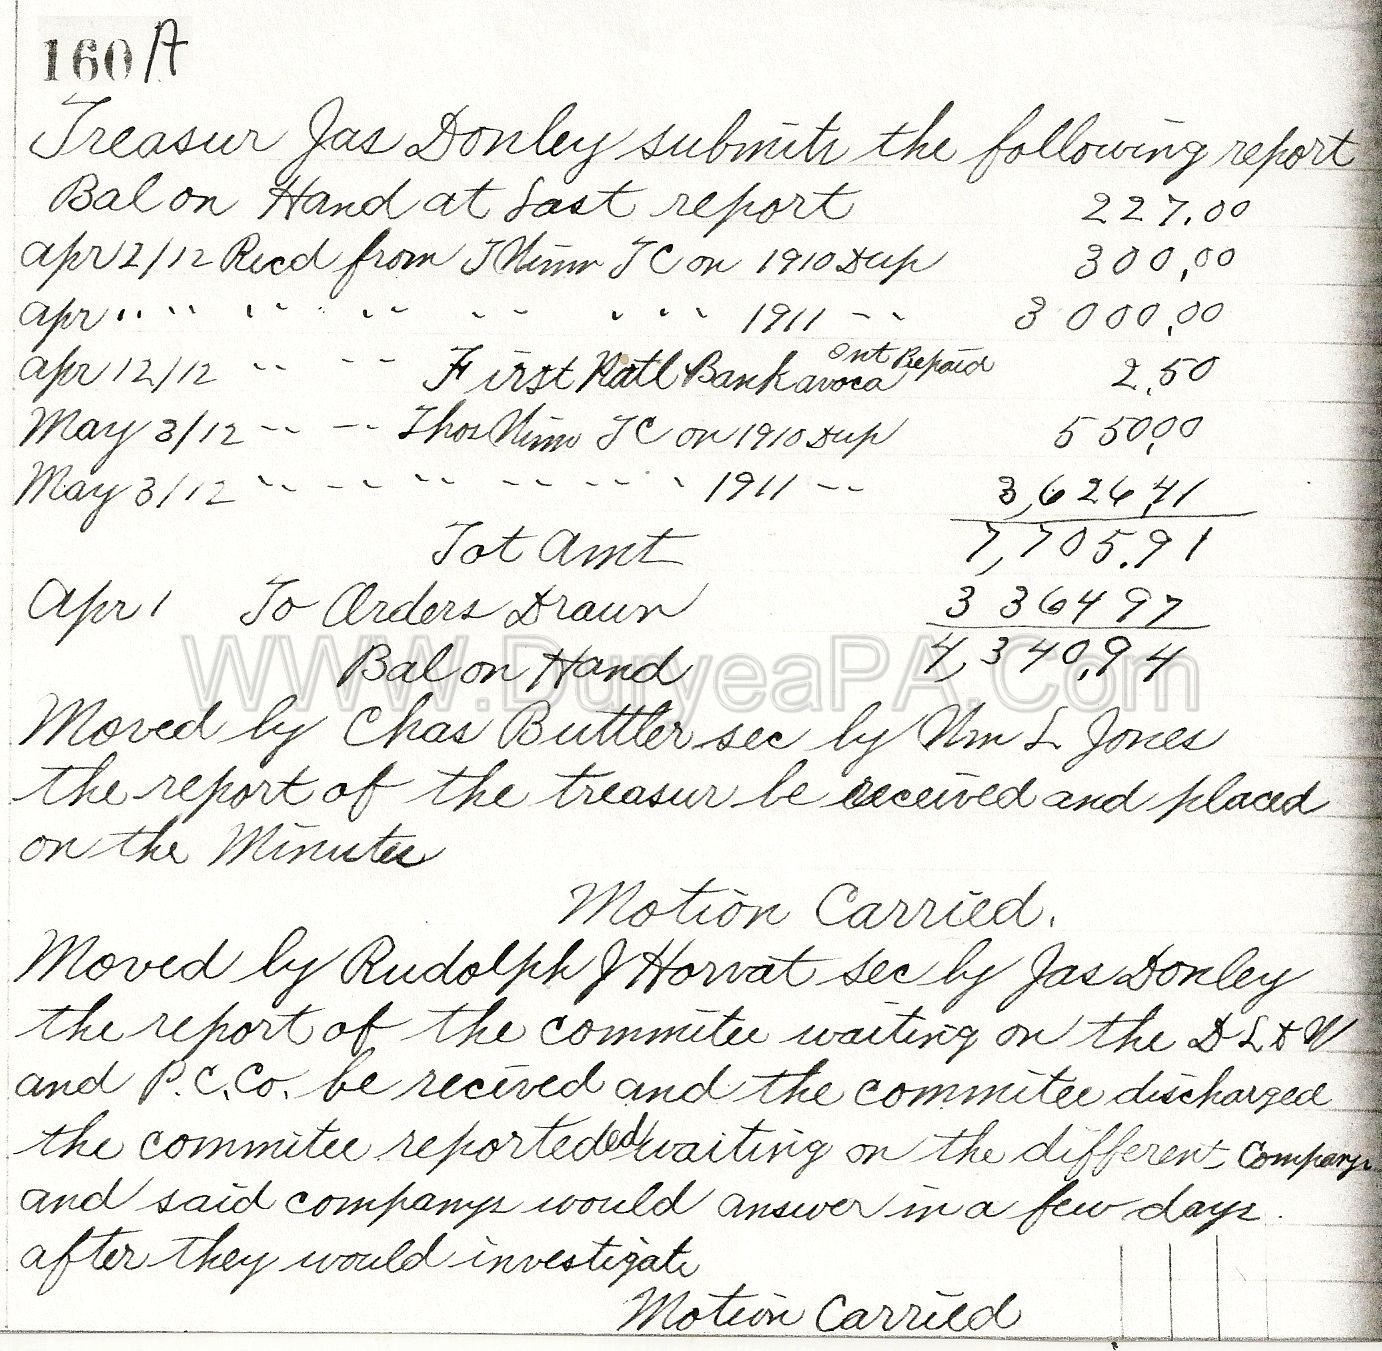 160 A
Treasur Jas Donley submits the following report
Bal on Hand at Last report 227.00
apr 2/12 Recd from T Ninn TC on 1910 Dup 300.00
apr " " " " " " " " 1911 " 3000.00
apr 12/12 " " First Natl Bank avoca Ont Repaid 2.50
May 3/12 " " Thos Ninn TC on 1910 Dup 550.00
May 3/12 " " " " " " 1911 " 3,626.41
Tot Amt 7,705.91
Apr 1 To Orders Drawn 3 364 97
Bal on Hand 4,340.94
WWW.DuryeaPA.Com
Moved by Chas Buttler sec by Wm L Jones
the report of the treasur be received and placed
on the Minutes
Motion Carried.
Moved by Rudolph J Horvat sec by Jas Donley
the report of the commitee waiting on the D L & W
and P.C.Co. be recived and the commitee discharged
the commitee reporteded waiting on the different Companys
and said companys would answer in a few days.
after they would investigate
Motion Carried